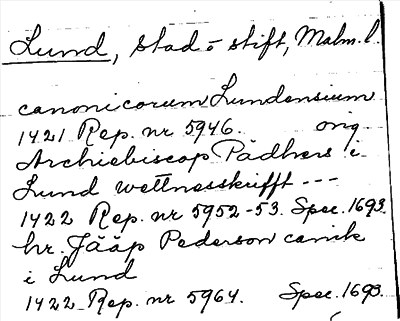 Lund, stad o stift, Malm. l.
canonicorum Lundensium
1421 Rep. nr 5946. orig.
Archiebiscop Pädhers i
Lund wettnesskrifft ---
1422 Rep. nr 5952-53. Spec. 1693.
hr. Jääp Pederson canik
i Lund
1422 Rep. nr 5964. Spec. 1693.